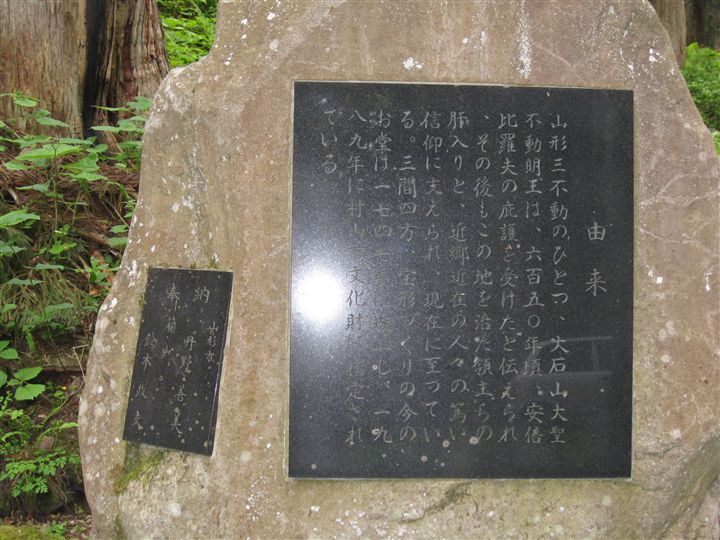 由来
山形三不動のひとつ、大石山大聖
不動明王は、六百五〇年頃、安倍
比羅夫の庇護を受けたと伝えられ
、その後もこの地を治た領主らの
肝入りと、近郷近在の人々の篤い
信仰に支えられ、現在に至ってい
る。三間四方、宝形づくりの今の
お堂は一七四七年に、一九
八九年に村山市文化財に指定され
ている。
奉納
山形市
鈴木